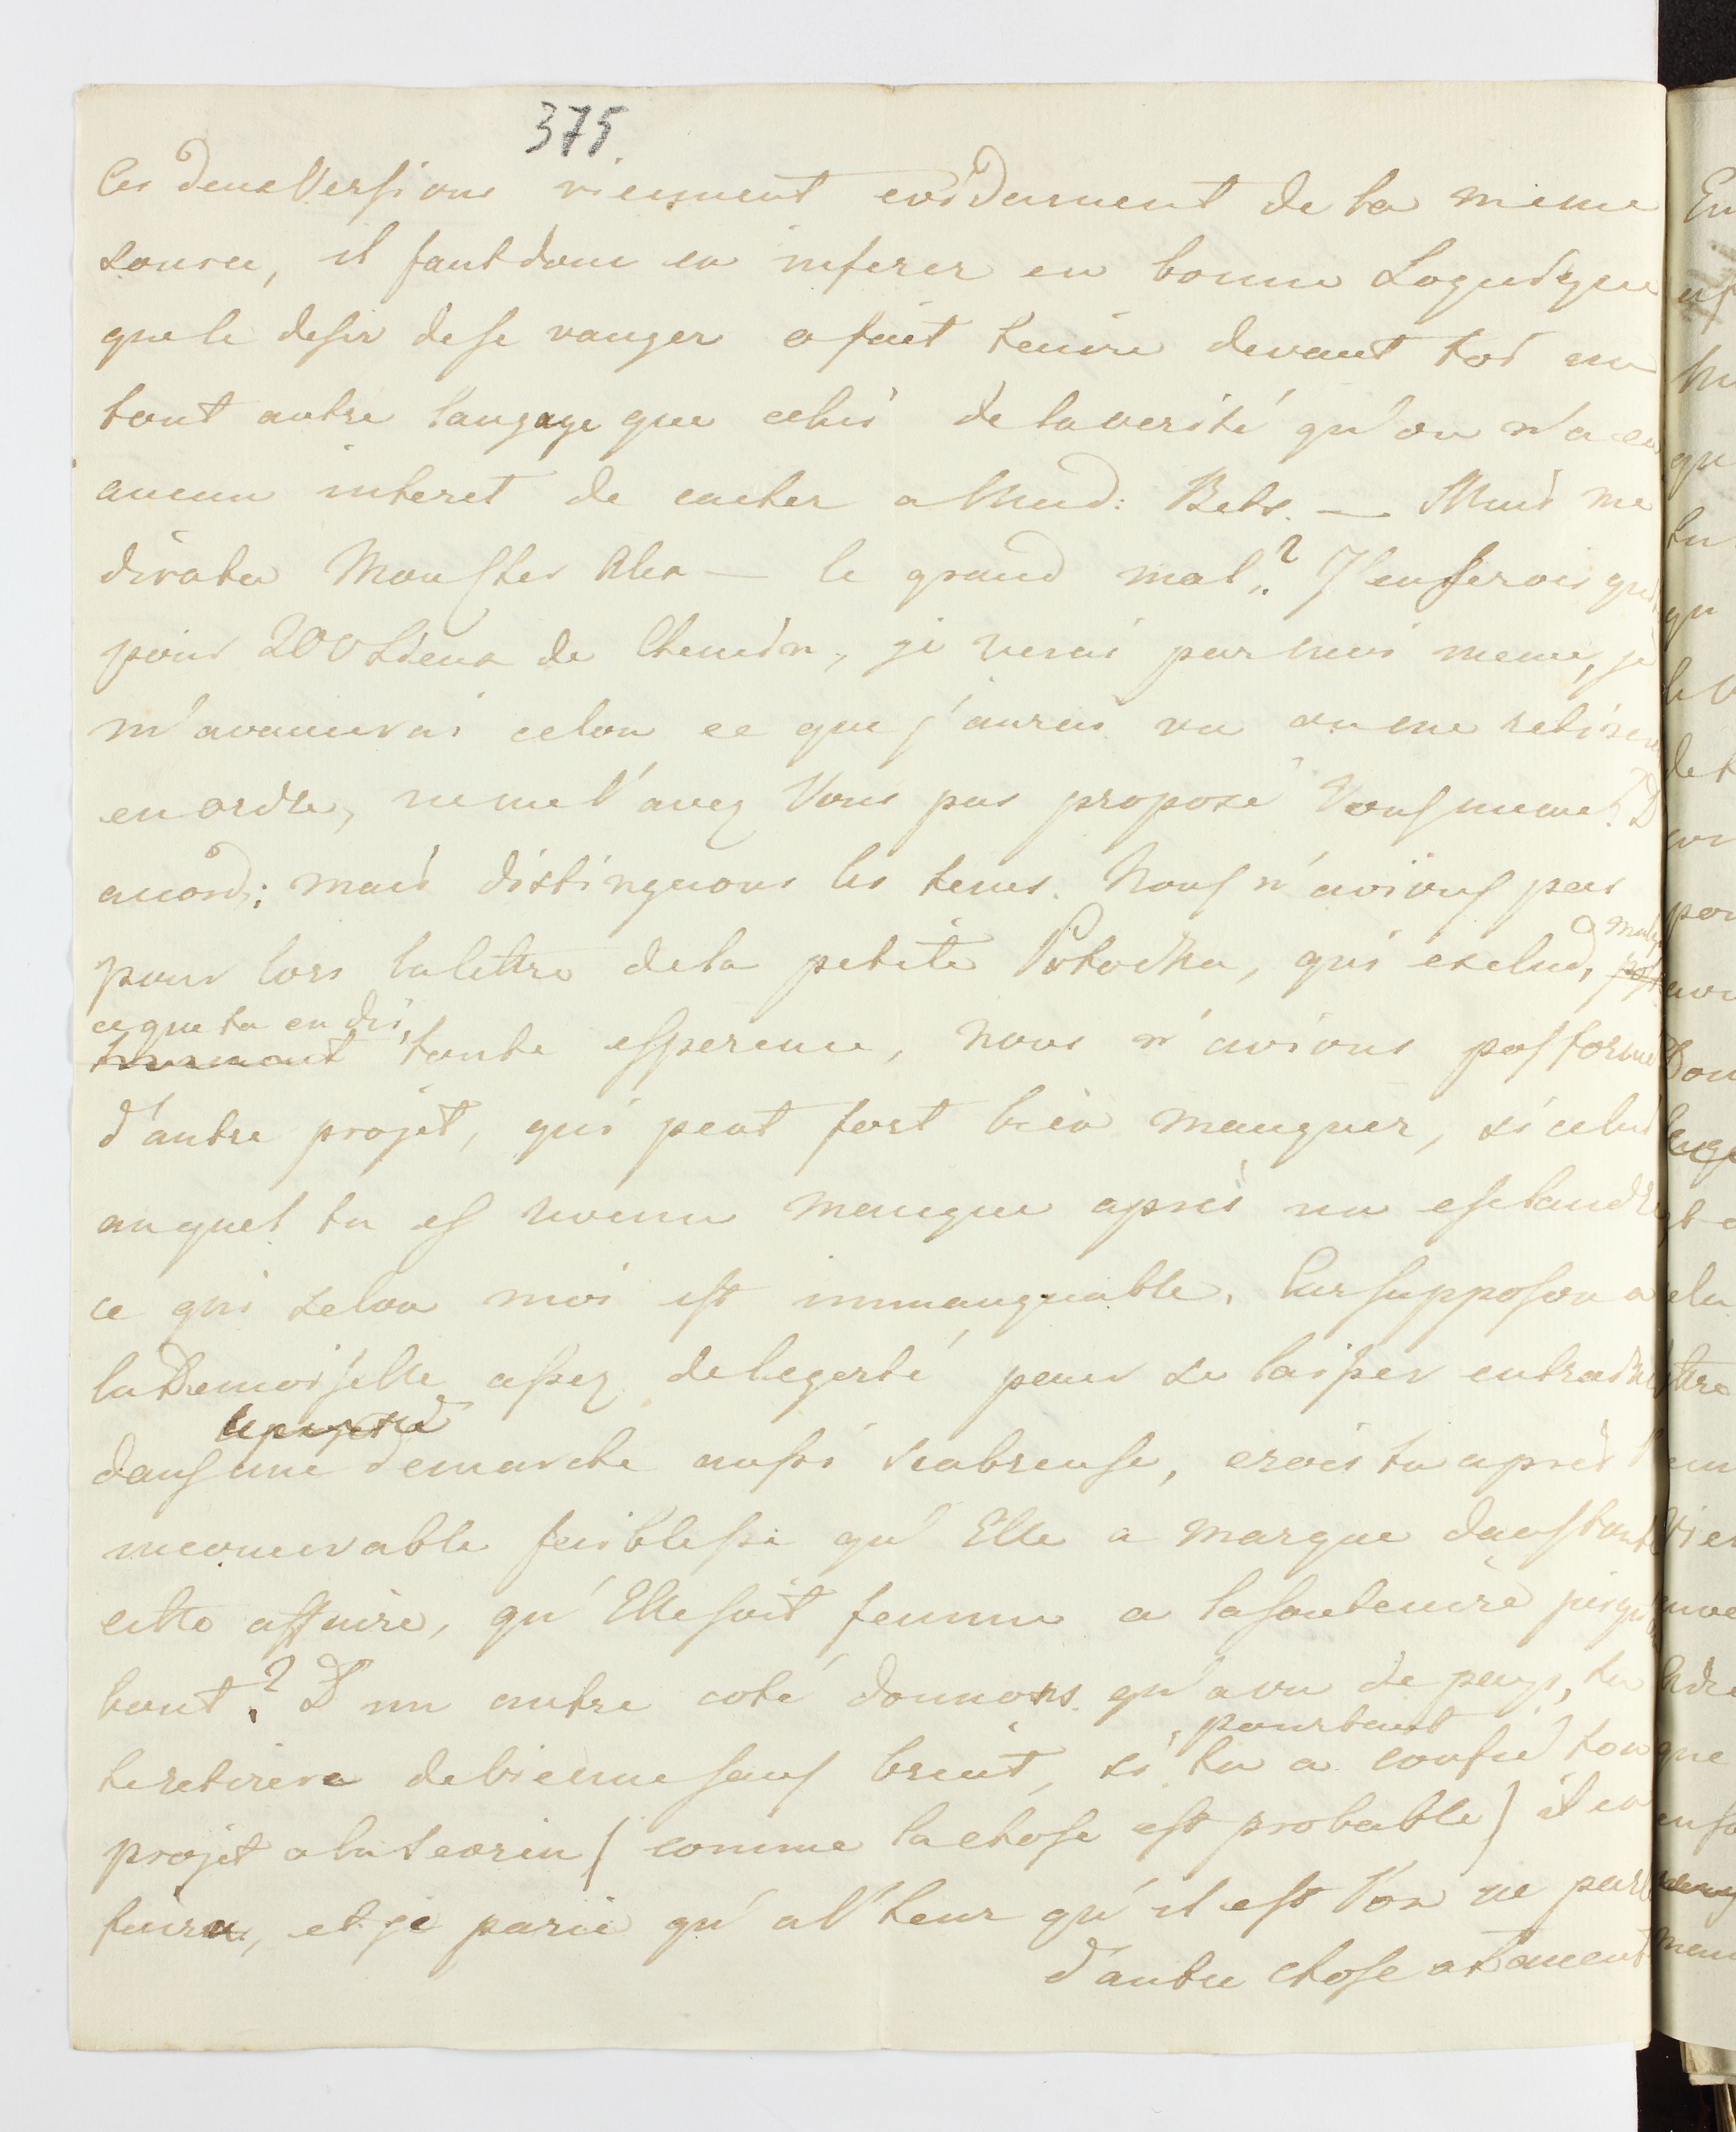 375.
Ces deux Versions viennent evidament de la meme
source, il faut donc en inferer en bonne Loguique
que le desir de se vanger a fait tenire devant toi un
tout autre langage que celui de la verité qu'on n'a eu
aucun interet de cacher a Mad: Bets. — Mais me
dirata Monster Alex — le grand mal? J'en serois quit
pour 200 Lieux de Chemin, je verai par moi meme, je
m'avancerai celon ce que j'aurai vu ou me retirera
en ordre, ne me l'avez Vous pas proposé Vous meme? D
acord; mais distinguons les tems. Nous n'avions pas
pour lors la lettre de la petite Potocka, qui exclud, malg
ce que tu en dis,
toute esperence, nous n'avions pas formé
d'autre projet, qui peut fort bien manquer, si celui
auquel tu es revenu manque après un esclandre
ce qui selon moi est immanquable. Car supposon a
la Demoiselle assez de legerté pour se laisser entrainer
dans une demarche aussi scabreuse, crois tu après l'
inconcevable faiblesse qu'Elle a marqué dans toute
cette affaire, qu'Elle soit femme a la soutenire jusqu'au
bout? D'un autre coté donnons qu'a vu de pays, tu
te retirera de Vienne sans bruit, si pourtant tu a confié ton
projet a la Scorin (comme la chose est probable) il en
fuira, et je parie qu'a l'heur qu'il est l'on ne parle
d'autre chose a Lancut